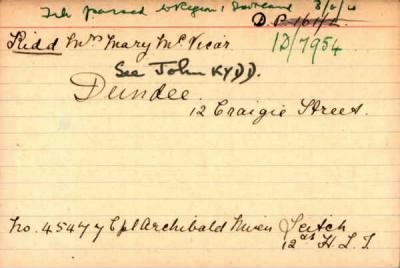 passed to Region 1 Scotland 3/2/20
D.P. 161/2.
Kidd Mrs Mary McVicar 12/7954
See John KYDD.
Dundee.
12 Craigie Street.
No. 45477 Cpl Archibald Niven Leitch
12th H L I